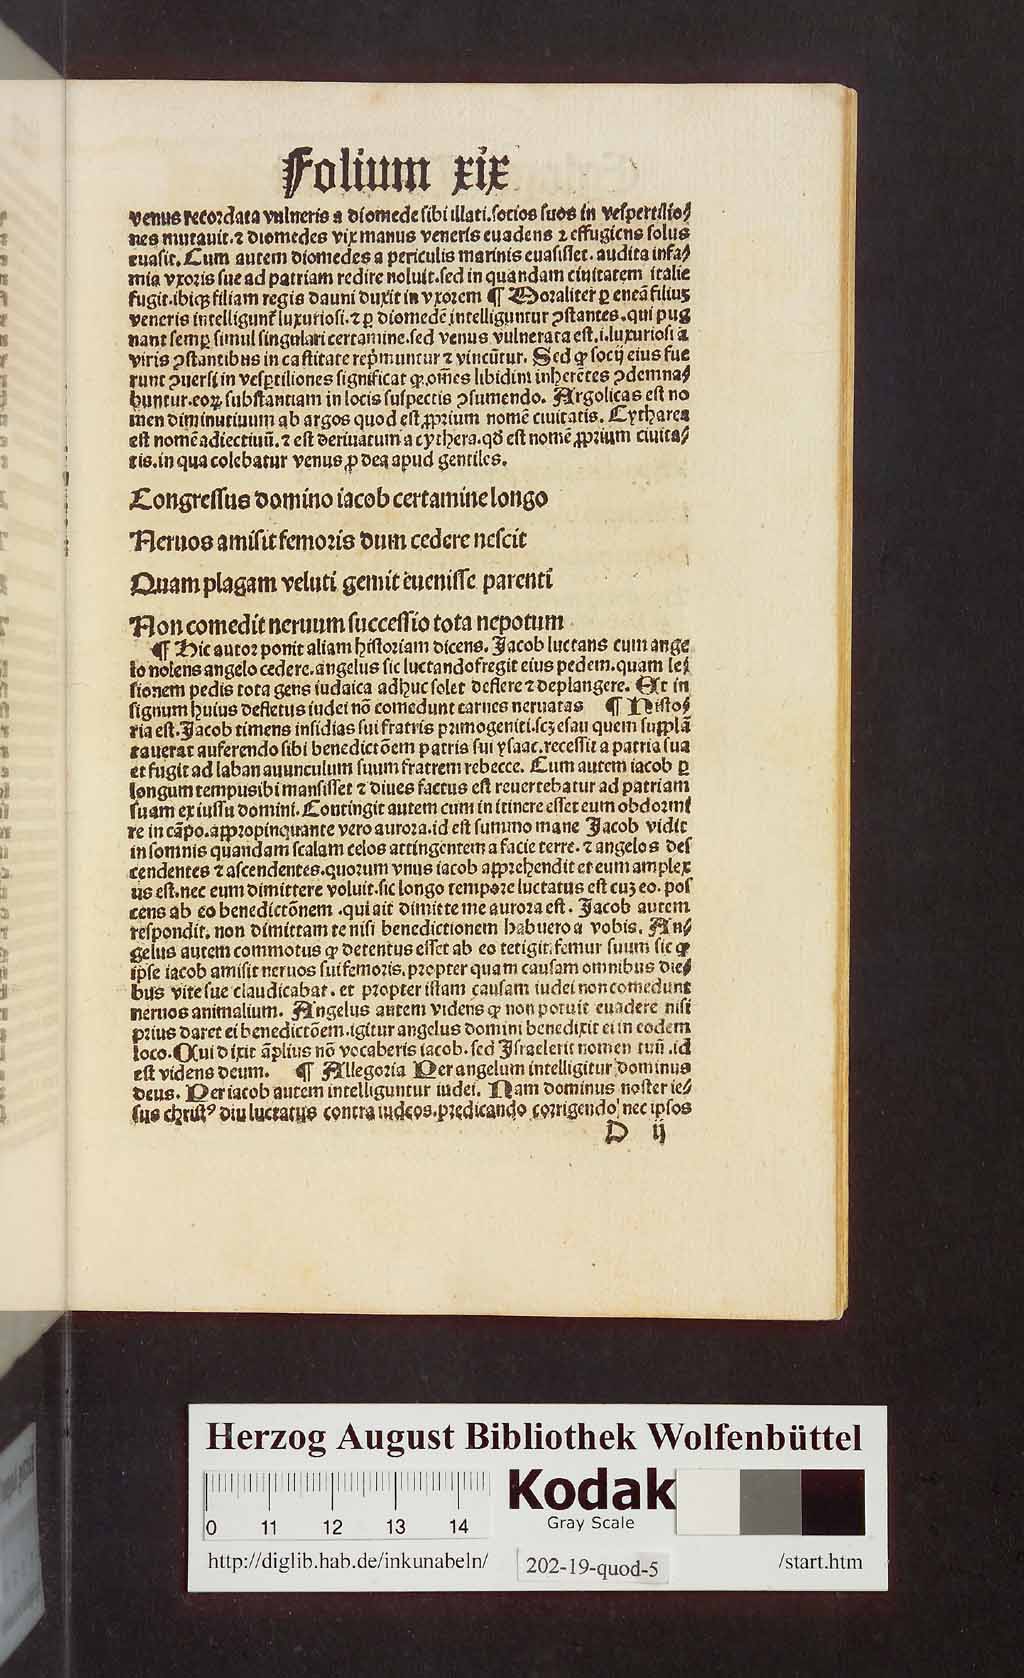 Folium xix
venus recordata vulneris a diomede sibi illati.socios suos in vespertilio⸗
nes mutauit.⁊ diomedes vix manus veneris euadens ⁊ effugiens solus
euasit. Cum autem diomedes a periculis marinis euasisset. audita infa⸗
mia vxoris sue ad patriam redire noluit.sed in quandam ciuitatem italie
fugit.ibiqꝫ filiam regis dauni duxit in vxorem ¶ Moraliter ꝑ eneā filiuꝫ
veneris intelligunt᷑ luxuriosi.⁊ ꝑ diomedē intelliguntur ꝯstantes.qui pug
nant semꝑ simul singulari certamine.sed venus vulnerata est.i.luxuriosi a
viris ꝯstantibus in castitate rep̄muntur ⁊ vincūtur. Sed ꝙ socij eius fue
runt ꝯuersi in vesꝑtiliones significat ꝙ.om̄es libidini inherētes ꝯdemna⸗
buntur.eoꝝ substantiam in locis suspectis ꝯsumendo. Argolicas est no
men diminutiuum ab argos quod est ꝓprium nomē ciuitatis. Cytharea
est nomē adiectiuū.⁊ est deriuatum a cythera.qd̄ est nomē ꝓprium ciuita⸗
tis.in qua colebatur venus ꝓ dea apud gentiles.
Congressus domino iacob certamine longo
Neruos amisit femoris dum cedere nescit
Quam plagam veluti gemit euenisse parenti
Non comedit neruum successio tota nepotum
¶ Hic autor ponit aliam historiam dicens. Jacob luctans cum ange
lo nolens angelo cedere.angelus sic luctando fregit eius pedem.quam le⸗
sionem pedis tota gens iudaica adhuc solet deflere ⁊ deplangere. Et in
signum huius defletus iudei nō comedunt carnes neruatas ¶ Histo⸗
ria est.Jacob timens insidias sui fratris primogeniti.scꝫ esau quem supplā
tauerat auferendo sibi benedictōem patris sui ysaac.recessit a patria sua
et fugit ad laban auunculum suum fratrem rebecce. Cum autem iacob ꝑ
longum tempus ibi mansisset ⁊ diues factus est reuertebatur ad patriam
suam ex iussu domini.Contingit autem cum in itinere esset eum obdormi
re in cāpo.appropinquante vero aurora.id est summo mane Jacob vidit
in somnis quandam scalam celos attingentem a facie terre. ⁊ angelos des
cendentes ⁊ ascendentes.quorum vnus iacob apprehendit et eum amplex
us est.nec eum dimittere voluit.sic longo tempore luctatus est cuꝫ eo. pos
cens ab eo benedictōnem .qui ait dimitte me aurora est. Jacob autem
respondit. non dimittam te nisi benedictionem habuero a vobis. An⸗
gelus autem commotus ꝙ detentus esset ab eo tetigit femur suum sic ꝙ
ipse iacob amisit neruos sui femoris.propter quam causam omnibus die⸗
bus vite sue claudicabat. et propter istam causam iudei non comedunt
neruos animalium. Angelus autem videns ꝙ non potuit euadere nisi
prius daret ei benedictōem.igitur angelus domini benedixit ei in eodem
loco.Qui dixit āplius nō vocaberis iacob.sed Israel erit nomen tuū .id
est videns deum. ¶ Allegoria Per angelum intelligitur dominus
deus. Per iacob autem intelliguntur iudei. Nam dominus noster ie⸗
sus christꝰ diu luctatus contra iudeos.predicando corrigendo nec ipsos
D ij
Herzog August Bibliothek Wolfenbüttel
0 11 12 13 14
Kodak
Gray Scale
http://diglib.hab.de/inkunabeln/ 202-19-quod-5 /start.htm